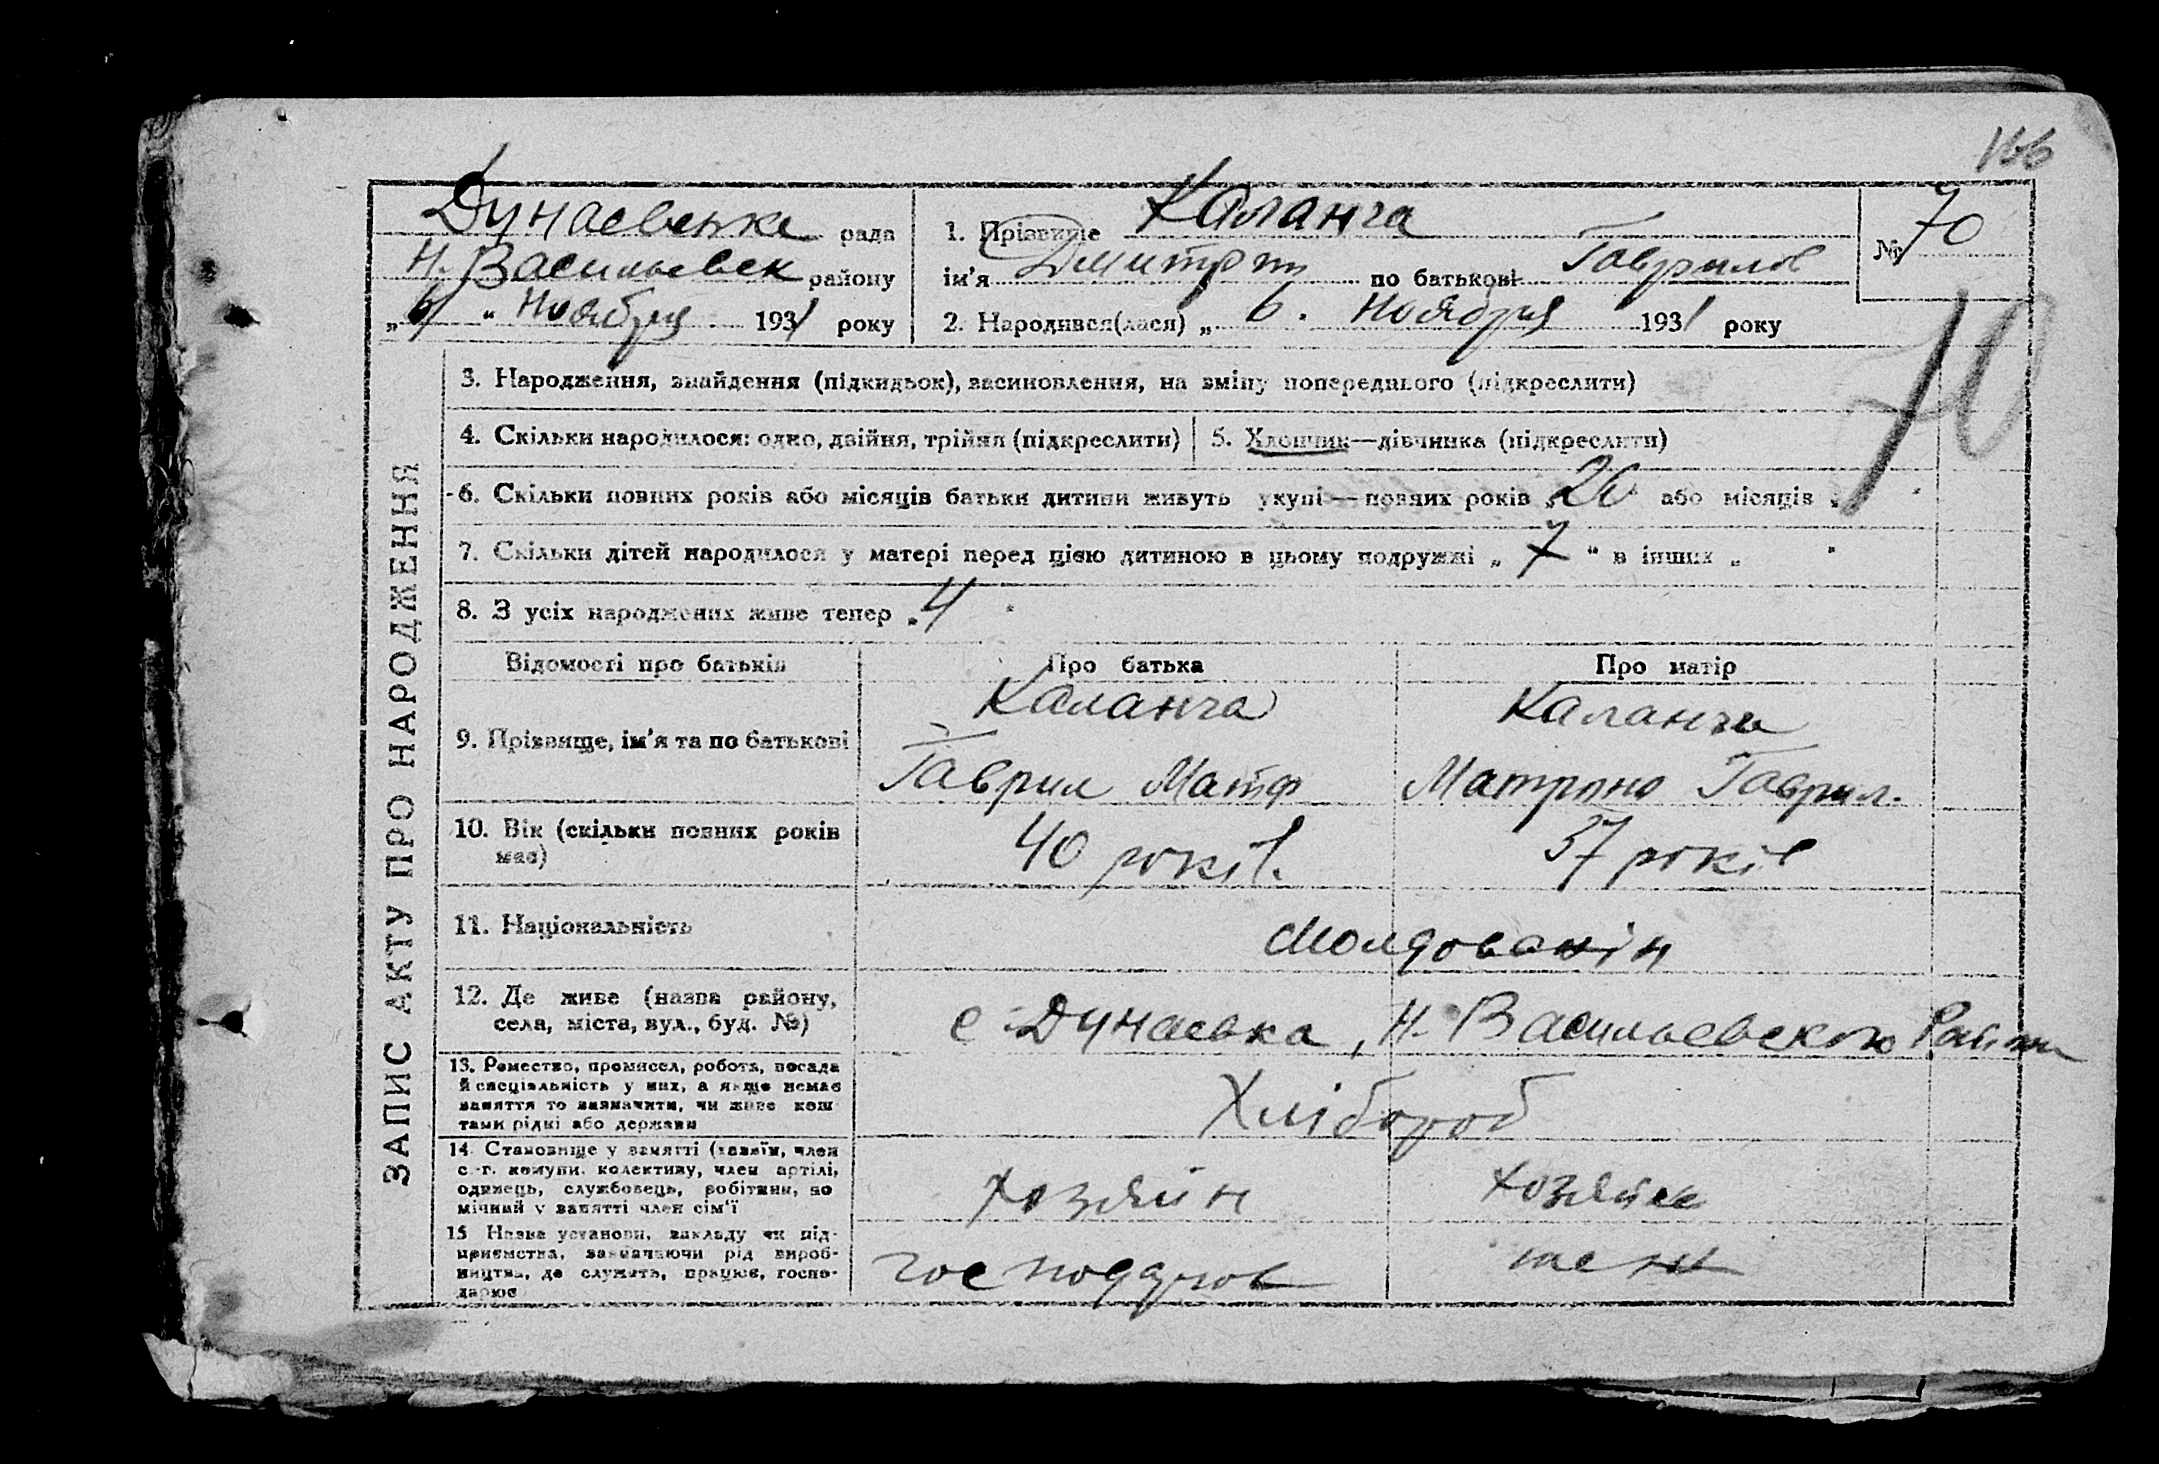 166
Дунаевське рада
Н. Васильевск району
„ 6 “ Ноября 1931 року
1. Прізвище Каланча
ім'я Дмитрий по батькові Гаврилов
2. Народився(лася) „ 6 . Ноября 1931 року
№ 70
70
ЗАПИС АКТУ ПРО НАРОДЖЕННЯ
3. Народження, знайдення (підкидьок), засиновлення, на зміну попереднього (підкреслити)
4. Скільки народилося: одно, двійня, трійня (підкреслити)
5. Хлопчик—дівчинка (підкреслити)
6. Скільки повних років або місяців батьки дитини живуть укупі—повних років „ 20 “ або місяців „
7. Скільки дітей народилося у матері перед цією дитиною в цьому подружжі „ 7 “ в інших „ “
8. З усіх народжених живе тепер „ 4 “
Відомості про батьків
Про батька
Про матір
9. Прізвище, ім'я та по батькові
Каланча
Гаврил Матф
Каланча
Матрона Гаврил.
10. Вік (скільки повних років
має)
40 років.
37 років
11. Національність
Молдованін
12. Де живе (назва району,
села, міста, вул., буд. №)
с. Дунаевка, Н. Васильевского Района
13. Ремество, промисел, робота, посада
й спеціяльність у них, а якщо немає
заняття то визначити, чи живе кош
тами рідні або держави
Хлібороб
14. Становище у занятті (хазяїн, член
с.-г. комуни, колективу, член артілі,
одинець, службовець, робітник, по
мічний у занятті член сім'ї
хозяин
хозяйка
15 Назва установи, закладу чи під-
приємства, зазначаючи рід вироб-
ництва, де служить, працює, госпо-
дарює
теж